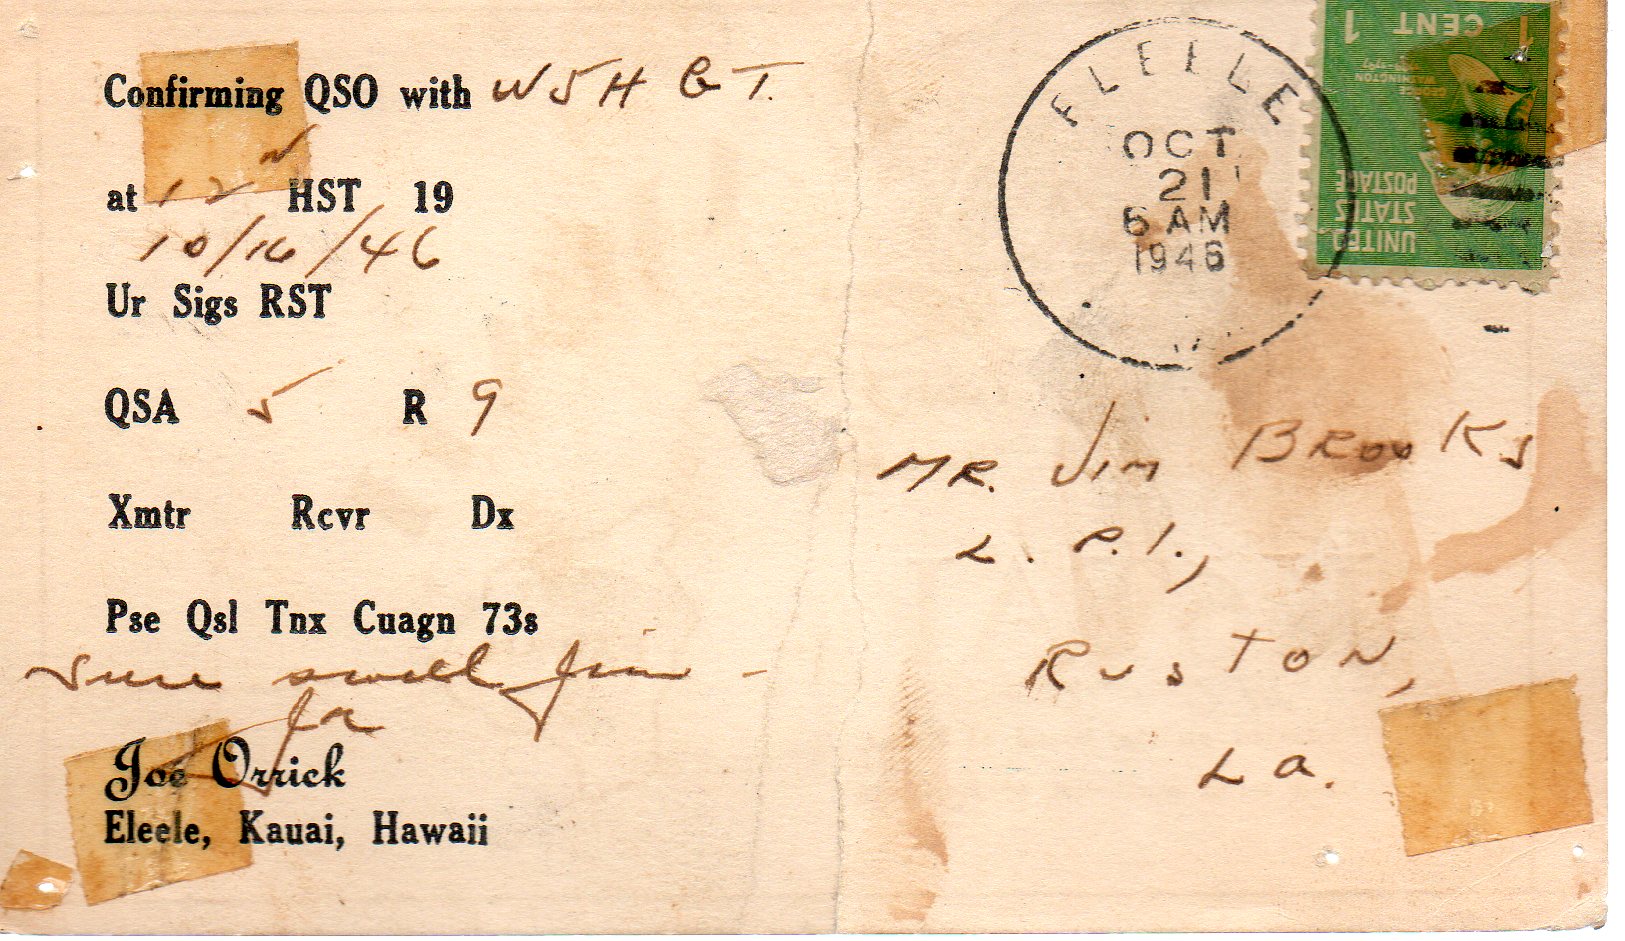 Confirming QSO with W5HGT.
at 12 N HST 19
10/16/46
Ur Sigs RST
QSA 5 R 9
Xmtr Rcvr Dx
Pse Qsl Tnx Cuagn 73s
Sure swell Jim -
Joe Orrick
Eleele, Kauai, Hawaii
ELEELE
OCT
21
5 AM
1946
1 CENT 1
GEORGE
WASHINGTON
1789-1797
UNITED
STATES
POSTAGE
MR. Jim BROOKS
L.P.I.,
RUSTON,
La.